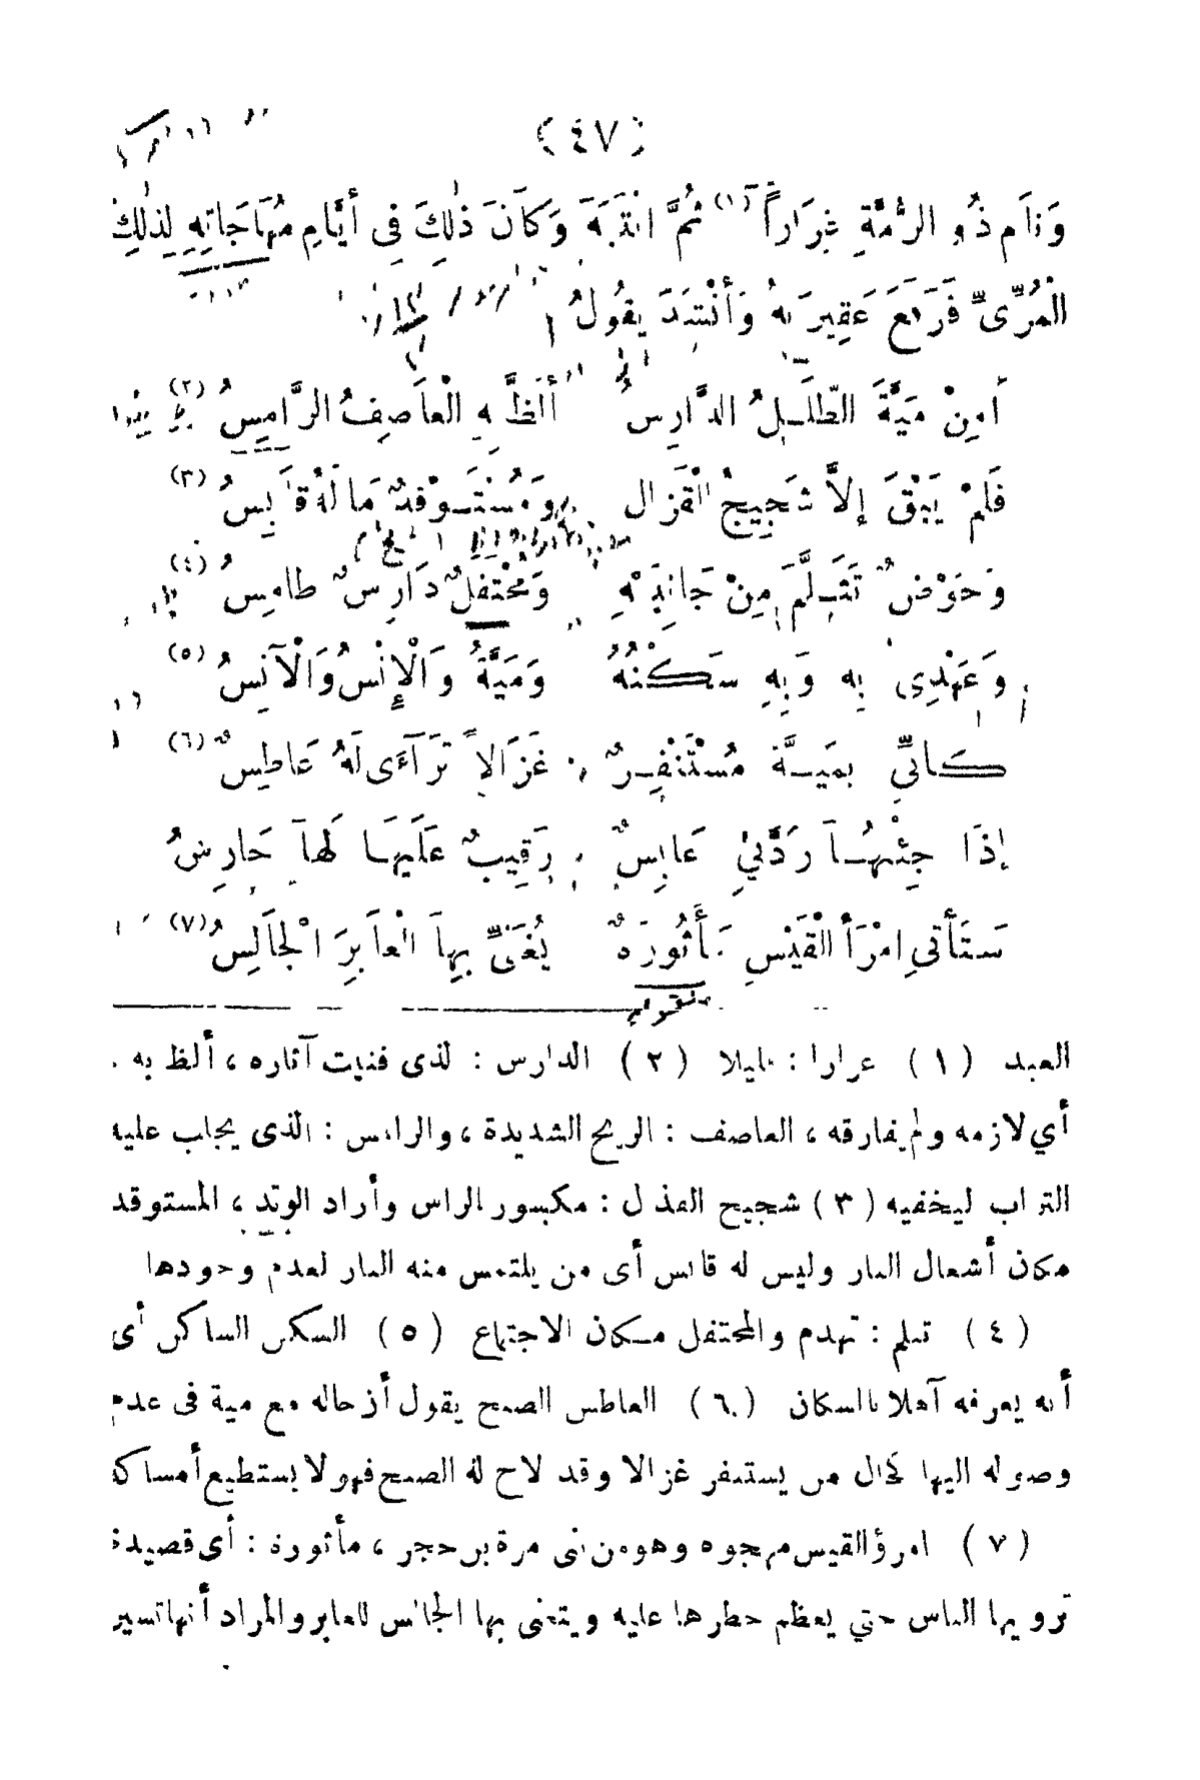 (٤٧)
وَنَامَ ذُو الرُّمَّةِ غِرَاراً (١) ثُمَّ انْتَبَهَ وَكَانَ ذٰلِكَ فِى أَيَّامِ مُهَاجَاتِهِ لِذٰلِكَ
الْمُرِّىِّ فَرَفَعَ عَقِيرَتَهُ وَأَنْشَدَ يَقُولُ
أَمِنْ مَيَّةَ الطَّلَلُ الدَّارِسُ أَلَظَّ بِهِ الْعَاصِفُ الرَّامِسُ (٢)
فَلَمْ يَبْقَ إِلاَّ شَجِيجُ الْقَذَالِ وَمُسْتَوْقَدٌ مَا لَهُ قَابِسُ (٣)
وَحَوْضٌ تَثَلَّمَ مِنْ جَانِبَيْهِ وَمُحْتَفَلٌ دَارِسٌ طَامِسُ (٤)
وَعَهْدِى بِهِ وَبِهِ سَكْنُهُ وَمَيَّةُ وَالْإِنْسُ وَالْآنِسُ (٥)
كَأَنِّى بِمَيَّةَ مُسْتَنْفِرٌ غَزَالاً تَرَآءَى لَهُ عَاطِسٌ (٦)
إِذَا جِئْتُهَا رَدَّنِى عَابِسٌ رَقِيبٌ عَلَيْهَا لَهَا حَارِسُ
سَتَأْتِى امْرَأَ الْقَيْسِ مَأْثُورَةٌ يُغَنِّى بِهَا الْعَابِرَ الْجَالِسُ (٧)
العبد (١) غرارا : قليلا (٢) الدارس : الذى فنيت آثاره ، ألظ به .
أي لازمه ولم يفارقه ، العاصف : الريح الشديدة ، والرامس : الذى يجلب عليه
التراب ليخفيه (٣) شجيج القذال : مكسور الراس وأراد الوتد ، المستوقد
مكان أشعال النار وليس له قابس أى من يلتمس منه النار لعدم وجودها
(٤) تثلم : تهدم والمحتفل مكان الاجتماع (٥) السكن الساكن أى
أنه يعرفه آهلا بالسكان (٦) العاطس الصبح يقول أن حاله مع مية فى عدم
وصوله اليها كحال من يستنفر غزالا وقد لاح له الصبح فهو لا يستطيع أمساكه
(٧) امرؤ القيس مهجوه وهو من بنى مرة بن حجر ، مأثورة : أى قصيدة
ترويها الناس حتي يعظم خطرها عليه ويتغنى بها الجالس للعابر والمراد أنها تسير